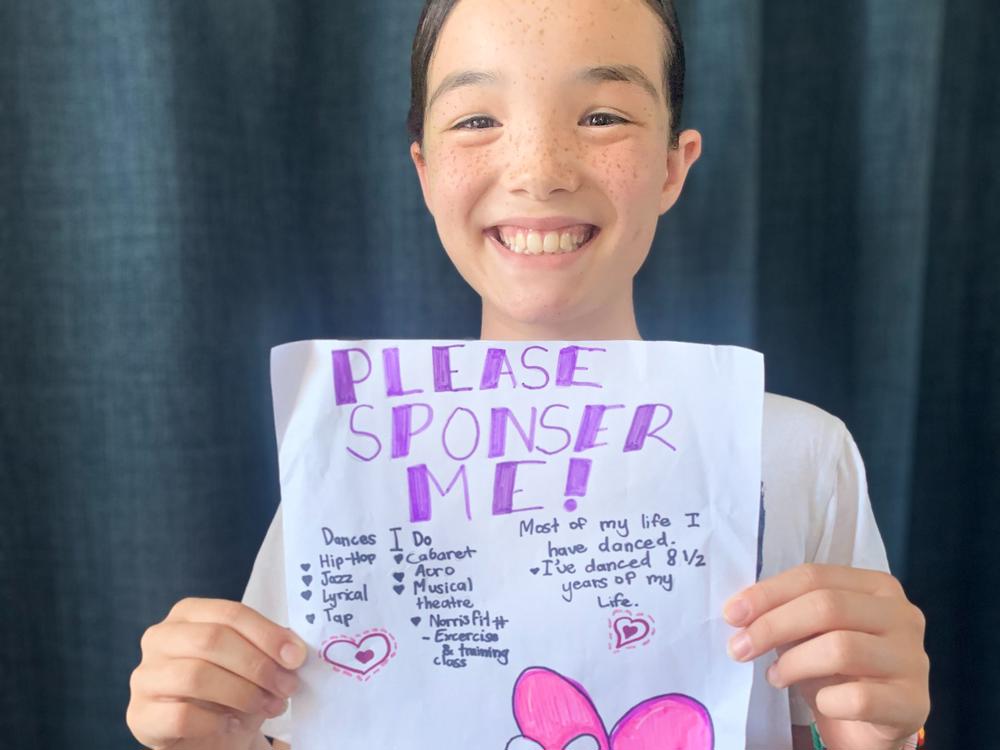 PLEASE
SPONSER
ME!
Dances I Do
Hip-Hop
Jazz
Lyrical
Tap
Cabaret
Acro
Musical
theatre
Norrisfitt
- Excercise
& training
class
Most of my life I
have danced.
I've danced 8 1/2
years of my
Life.